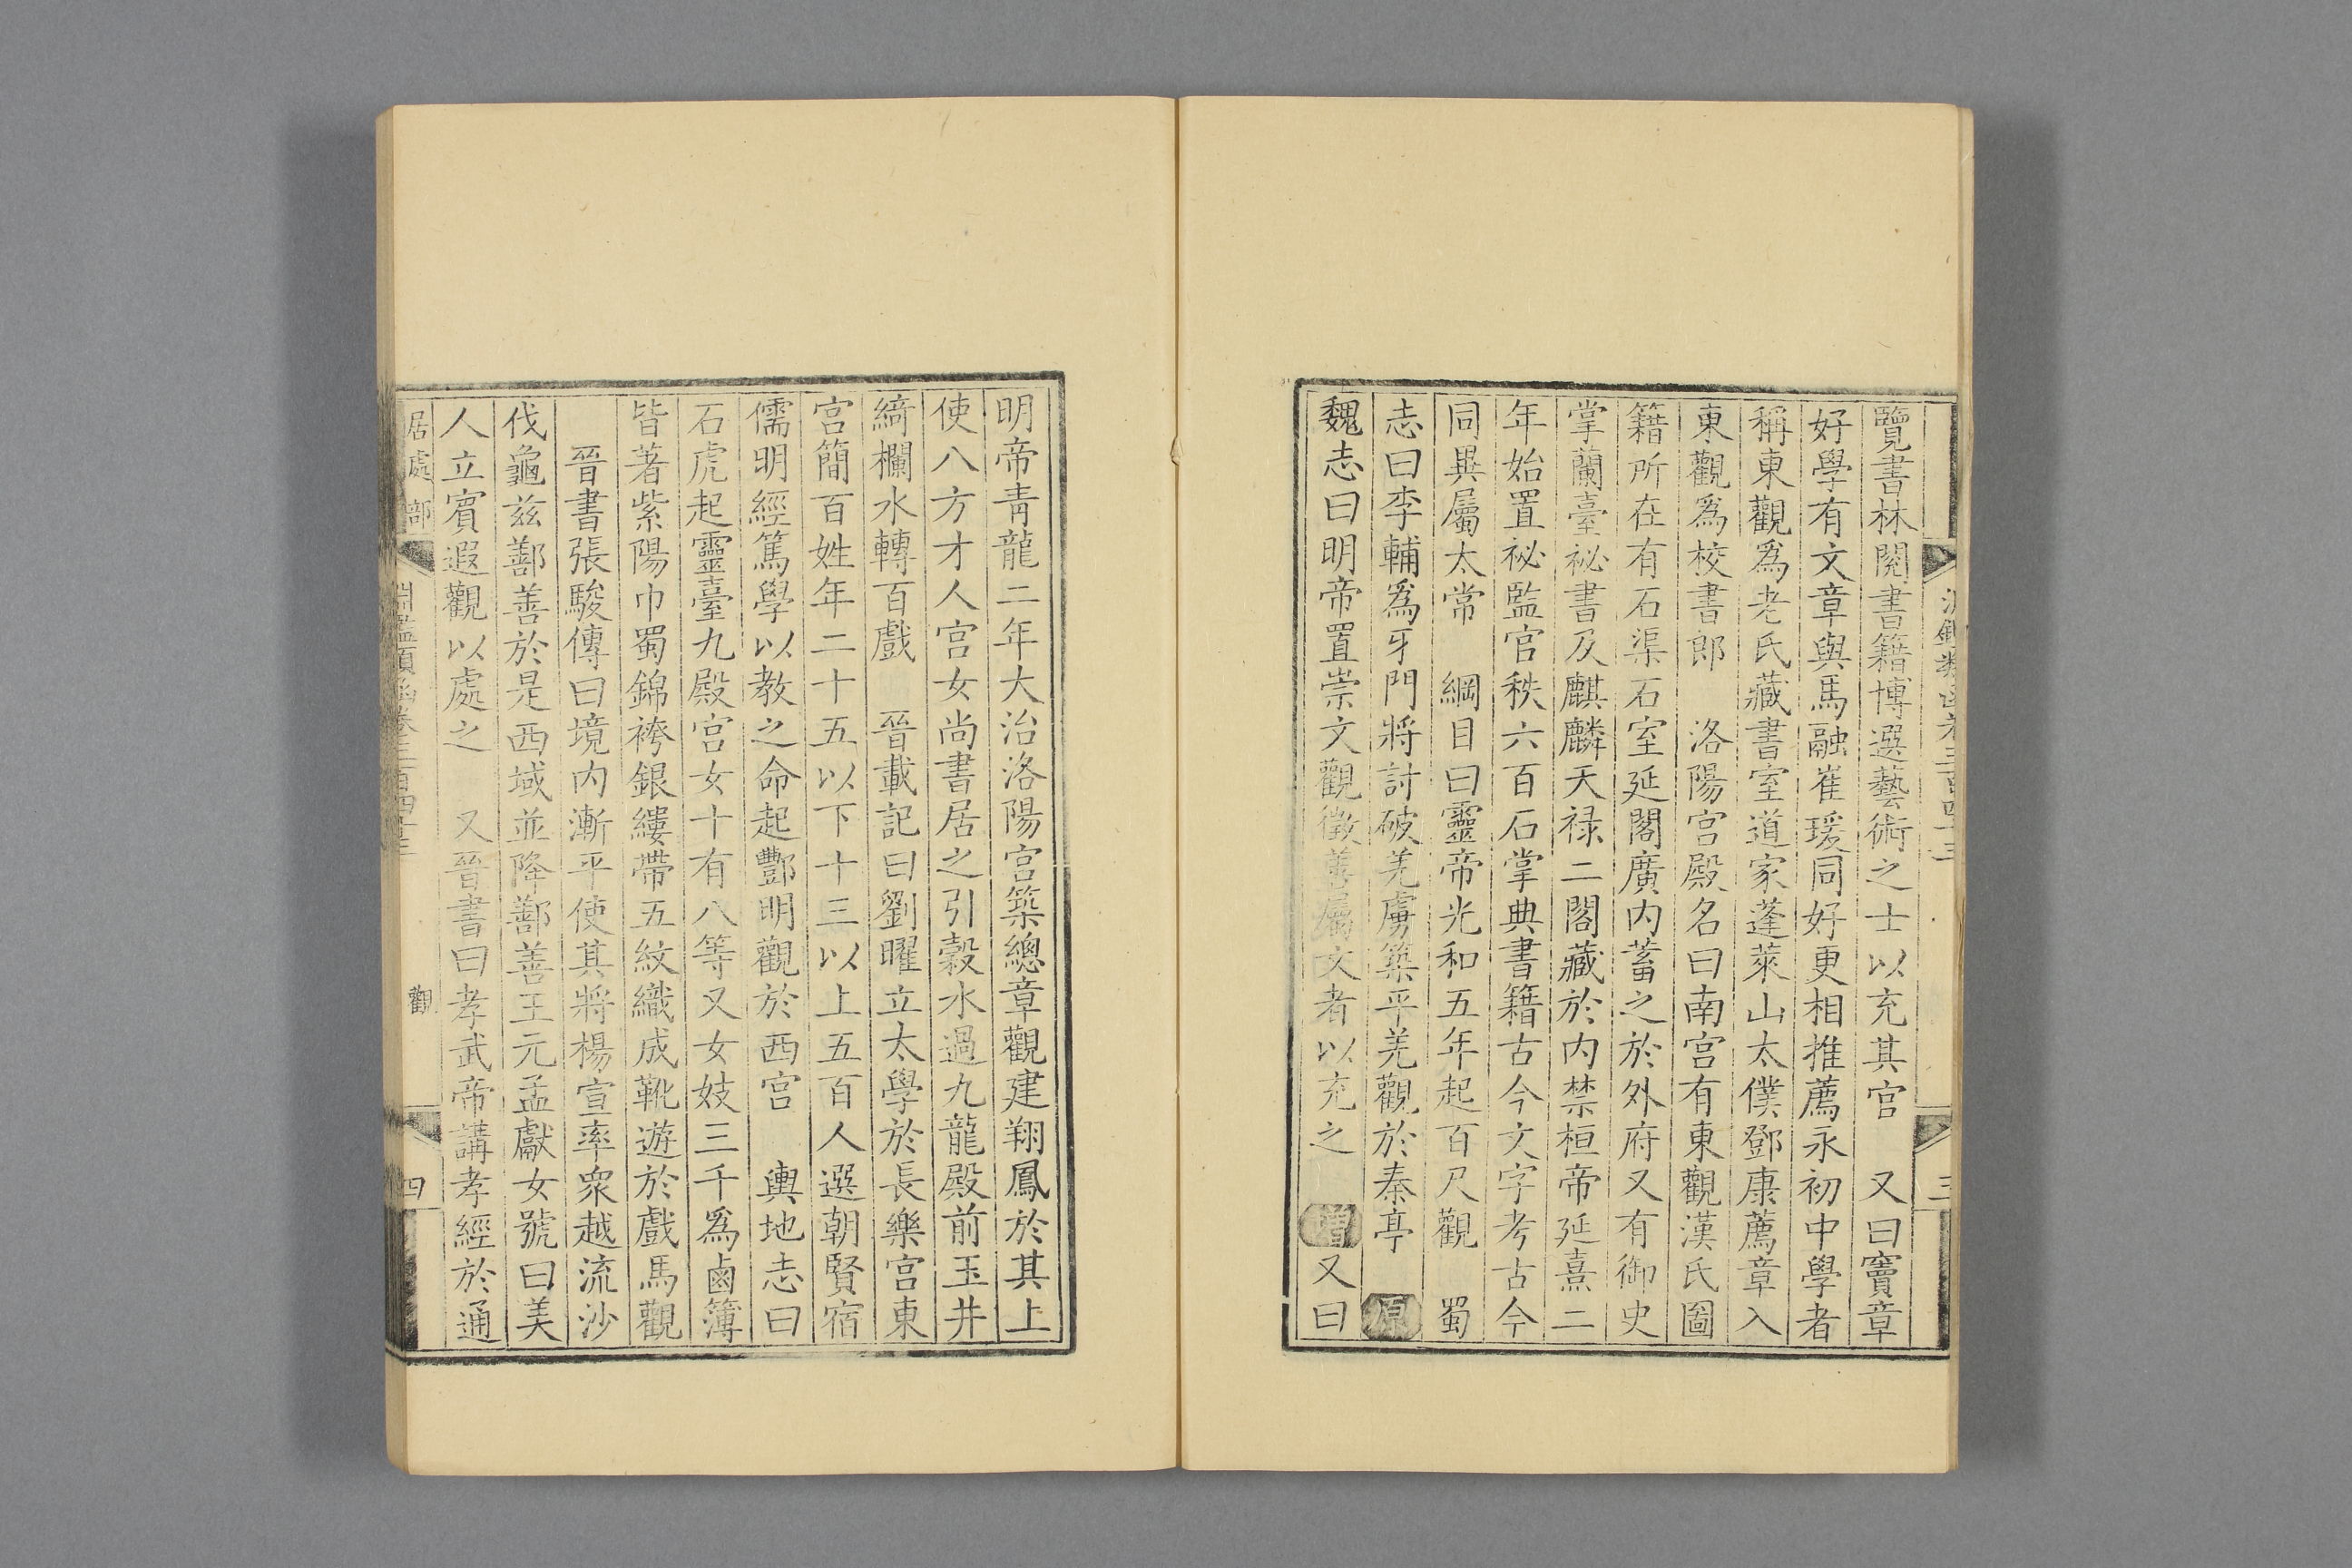 覽書林閱書籍博選藝術之士以充其官　又曰竇章
好學有文章與馬融崔瑗同好更相推薦永初中學者
稱東觀爲老氏藏書室道家蓬萊山太僕鄧康薦章入
東觀爲校書郎　洛陽宮殿名曰南宮有東觀漢氏圖
籍所在有石渠石室延閣廣内蓄之於外府又有御史
掌蘭臺祕書及麒麟天禄二閣藏於内禁桓帝延熹二
年始置祕監官秩六百石掌典書籍古今文字考古今
同異屬太常　綱目曰靈帝光和五年起百尺觀　蜀
志曰李輔爲牙門將討破羌虜築平羌觀於秦亭　原
魏志曰明帝置崇文觀徵善屬文者以充之　增又曰
明帝靑龍二年大治洛陽宮築總章觀建翔鳳於其上
使八方才人宮女尚書居之引穀水過九龍殿前玉井
綺欄水轉百戲　晉載記曰劉曜立太學於長樂宮東
宮簡百姓年二十五以下十三以上五百人選朝賢宿
儒明經篤學以教之命起酆明觀於西宮　輿地志曰
石虎起靈臺九殿宮女十有八等又女妓三千爲鹵簿
皆著紫陽巾蜀錦袴銀縷帶五紋織成靴遊於戲馬觀
晉書張駿傳曰境内漸平使其將楊宣率衆越流沙
伐龜兹鄯善於是西域並降鄯善王元孟獻女號曰美
人立賓遐觀以處之　又晉書曰孝武帝講孝經於通
居處部　淵鑑類函卷三百四十三　觀　四